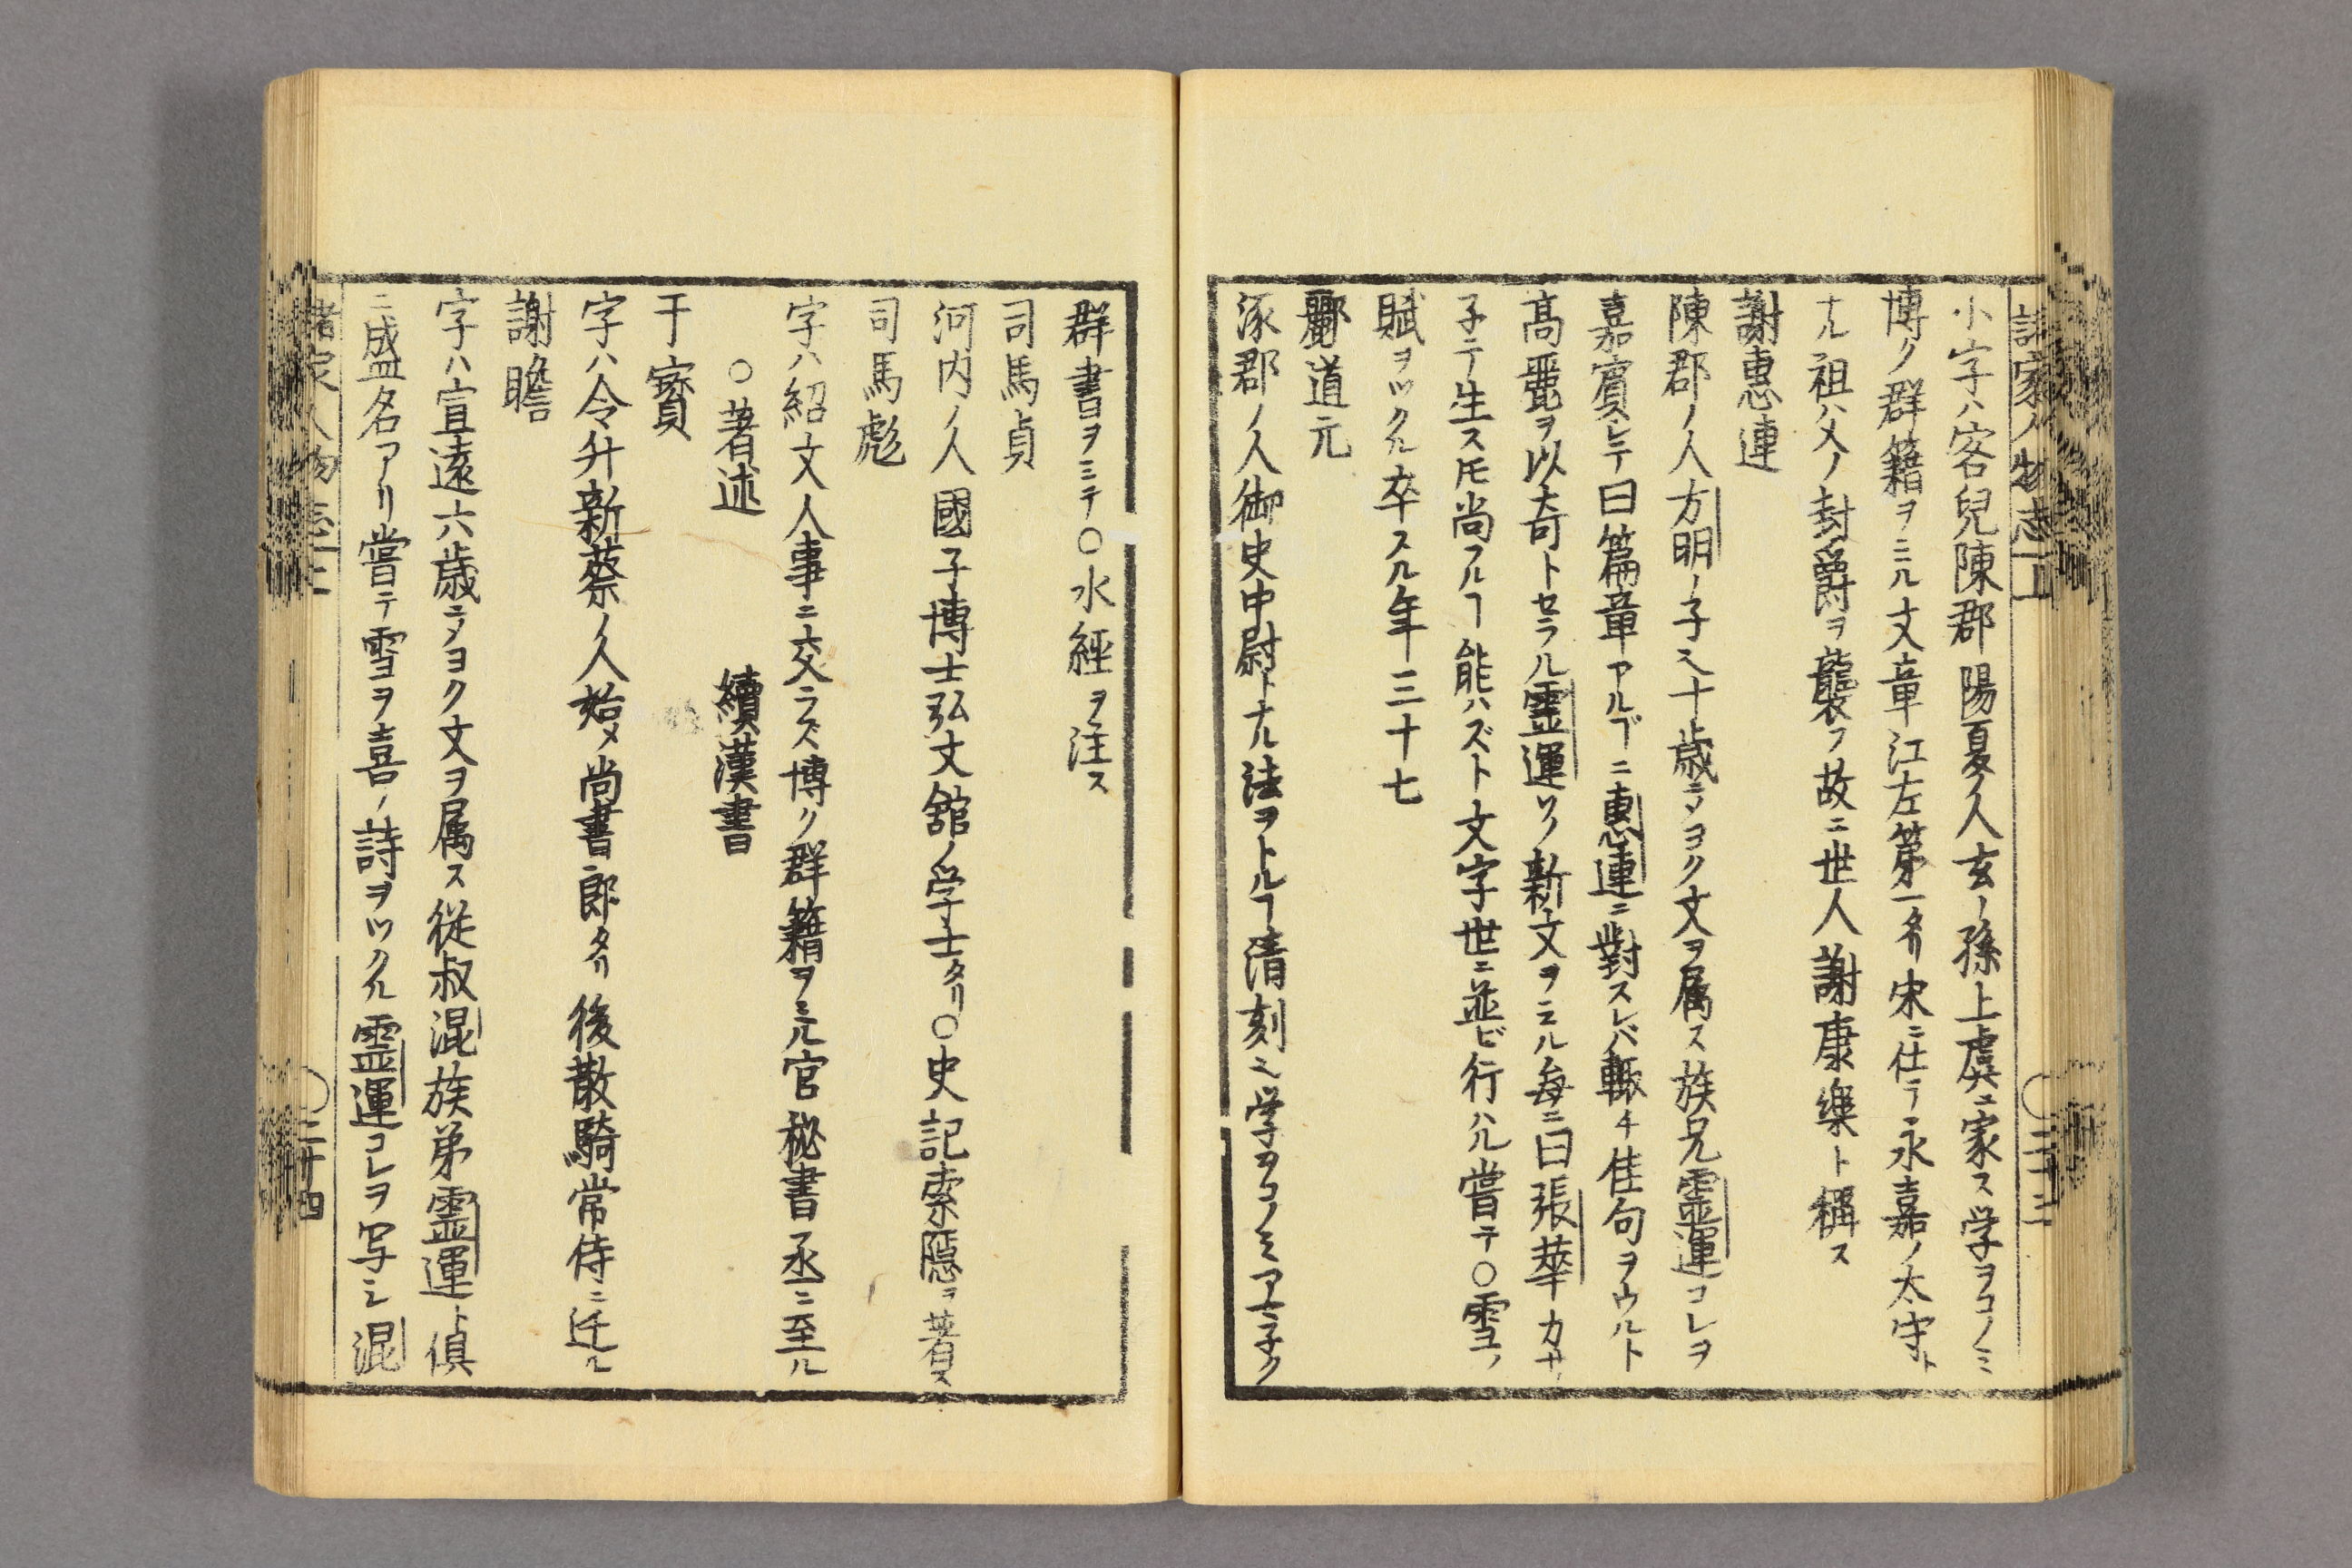 諸家人物志上 〇三十三
小字ハ客兒陳郡陽夏ノ人玄ノ孫上虞ニ家ス学ヲコノミ
博ク群籍ヲミル文章江左第一タリ宋ニ仕テ永嘉ノ太守ト
ナル祖ハ父ノ封爵ヲ襲フ故ニ世人謝康樂ト稱ス
謝惠連
陳郡ノ人方明ノ子ヘ十歳ニメヨク文ヲ属ス族兄霊運コレヲ
嘉賞シテ曰篇章アルヿニ惠連ニ對スレバ輙チ佳句ヲウルト
高麗ヲ以奇トセラル霊運ソノ新文ヲミル毎ニ曰張華カサ
子テ生ス𪜈尚フルヿ能ハズト文字世ニ並ビ行ハル嘗テ〇雪ノ
賦ヲツクル卒スル年三十七
酈道元
涿郡ノ人御史中尉トナル法ヲトルヿ清刻ヘ学ヲコノミアマ子ク
群書ヲミテ〇水經ヲ注ス
司馬貞
河内ノ人國子博士弘文舘ノ学士タリ〇史記索隱ヲ著ス
司馬彪
字ハ紹文人事ニ交ラズ博ク群籍ヲミル官秘書丞ニ至ル
〇著述 續漢書
干寳
字ハ令升新蔡ノ人始メ尚書郎タリ後散騎常侍ニ迁ル
謝瞻
字ハ宣遠六歳ニメヨク文ヲ属ス従叔混族弟霊運ト俱
ニ盛名アリ嘗テ雪ヲ喜ノ詩ヲツクル霊運コレヲ写シ混
諸家人物志上 〇三十四